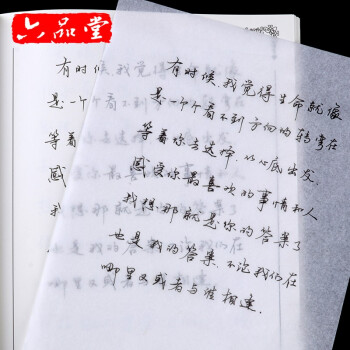 六品堂
有时候,我觉得生命就像
是一个个看不到方向的转弯在
等着你去选择.从心底出发.
感受你最喜欢的事情和人
我想那就是你的答案了
也是我的答案.不论我们在
哪里又或者与谁相逢.
有时候,我觉得
是一个个看不到
等着
感
我